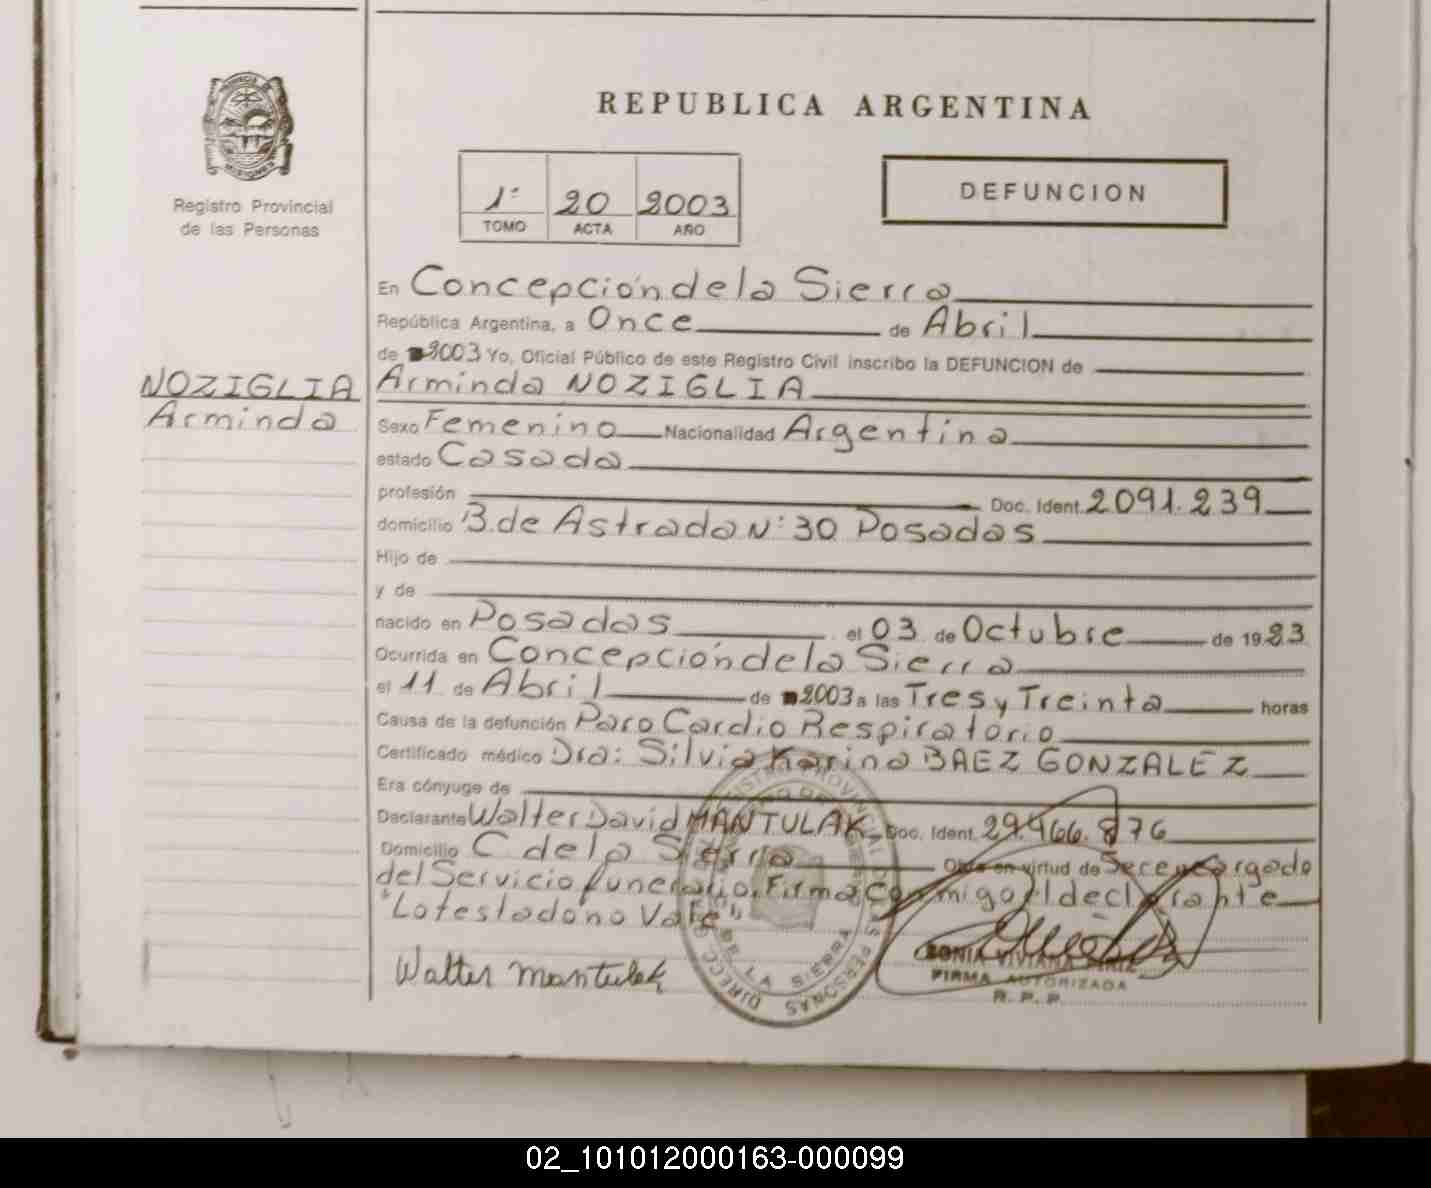 REPUBLICA ARGENTINA
Registro Provincial
de las Personas
1º 20 2003
TOMO ACTA AÑO
DEFUNCION
En Concepción de la Sierra
República Argentina, a Once de Abril
de 2003 Yo, Oficial Público de este Registro Civil inscribo la DEFUNCION de
NOZIGLIA
Arminda
Arminda NOZIGLIA
Sexo Femenino Nacionalidad Argentina
estado Casada
profesión Doc. Ident. 2091.239
domicilio B. de Astrada Nº 30 Posadas
Hijo de
y de
nacido en Posadas el 03 de Octubre de 1923
Ocurrida en Concepción de la Sierra
el 11 de Abril de 2003 a las Tres y Treinta horas
Causa de la defunción Paro Cardio Respiratorio
Certificado médico Dra: Silvia Karina BAEZ GONZALEZ
Era cónyuge de
Declarante Walter David MANTULAK Doc. Ident. 29.466.876
Domicilio C de la Sierra Obra en virtud de Ser encargado
del Servicio funerario. Firma Conmigo el declarante
"Lo testado no Vale"
Walter Mantulak
DE LA SIERRA
SONIA VIVIANA
FIRMA AUTORIZADA
R. P. P.
02_101012000163-000099